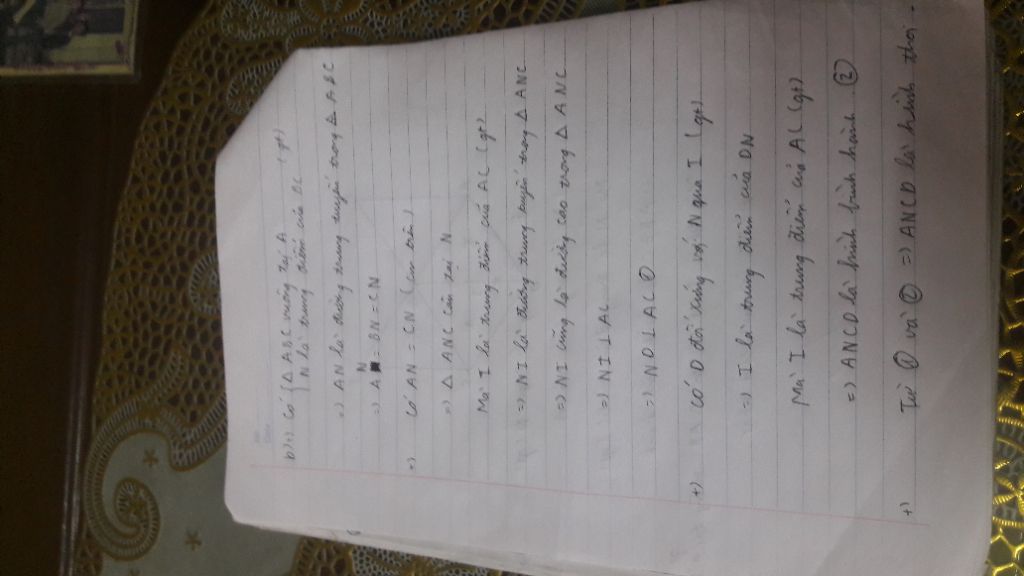 b) +) Có { Δ ABC vuông tại A
N là trung điểm của BC (gt)
=) AN là đường trung tuyến trong Δ ABC
=) AN = BN = CN
+) Có AN = CN (cm trên)
=) Δ ANC cân tại N
Mà I là trung điểm của AC (gt)
=) NI là đường trung tuyến trong Δ ANC
=) NI cũng là đường cao trong Δ ANC
=) NI ⊥ AC
=) ND ⊥ AC ①
+) Có D đối xứng với N qua I (gt)
=) I là trung điểm của DN
Mà I là trung điểm của AC (gt)
=) ANCD là hình bình hành ②
+) Từ ① và ② =) ANCD là hình thoi.